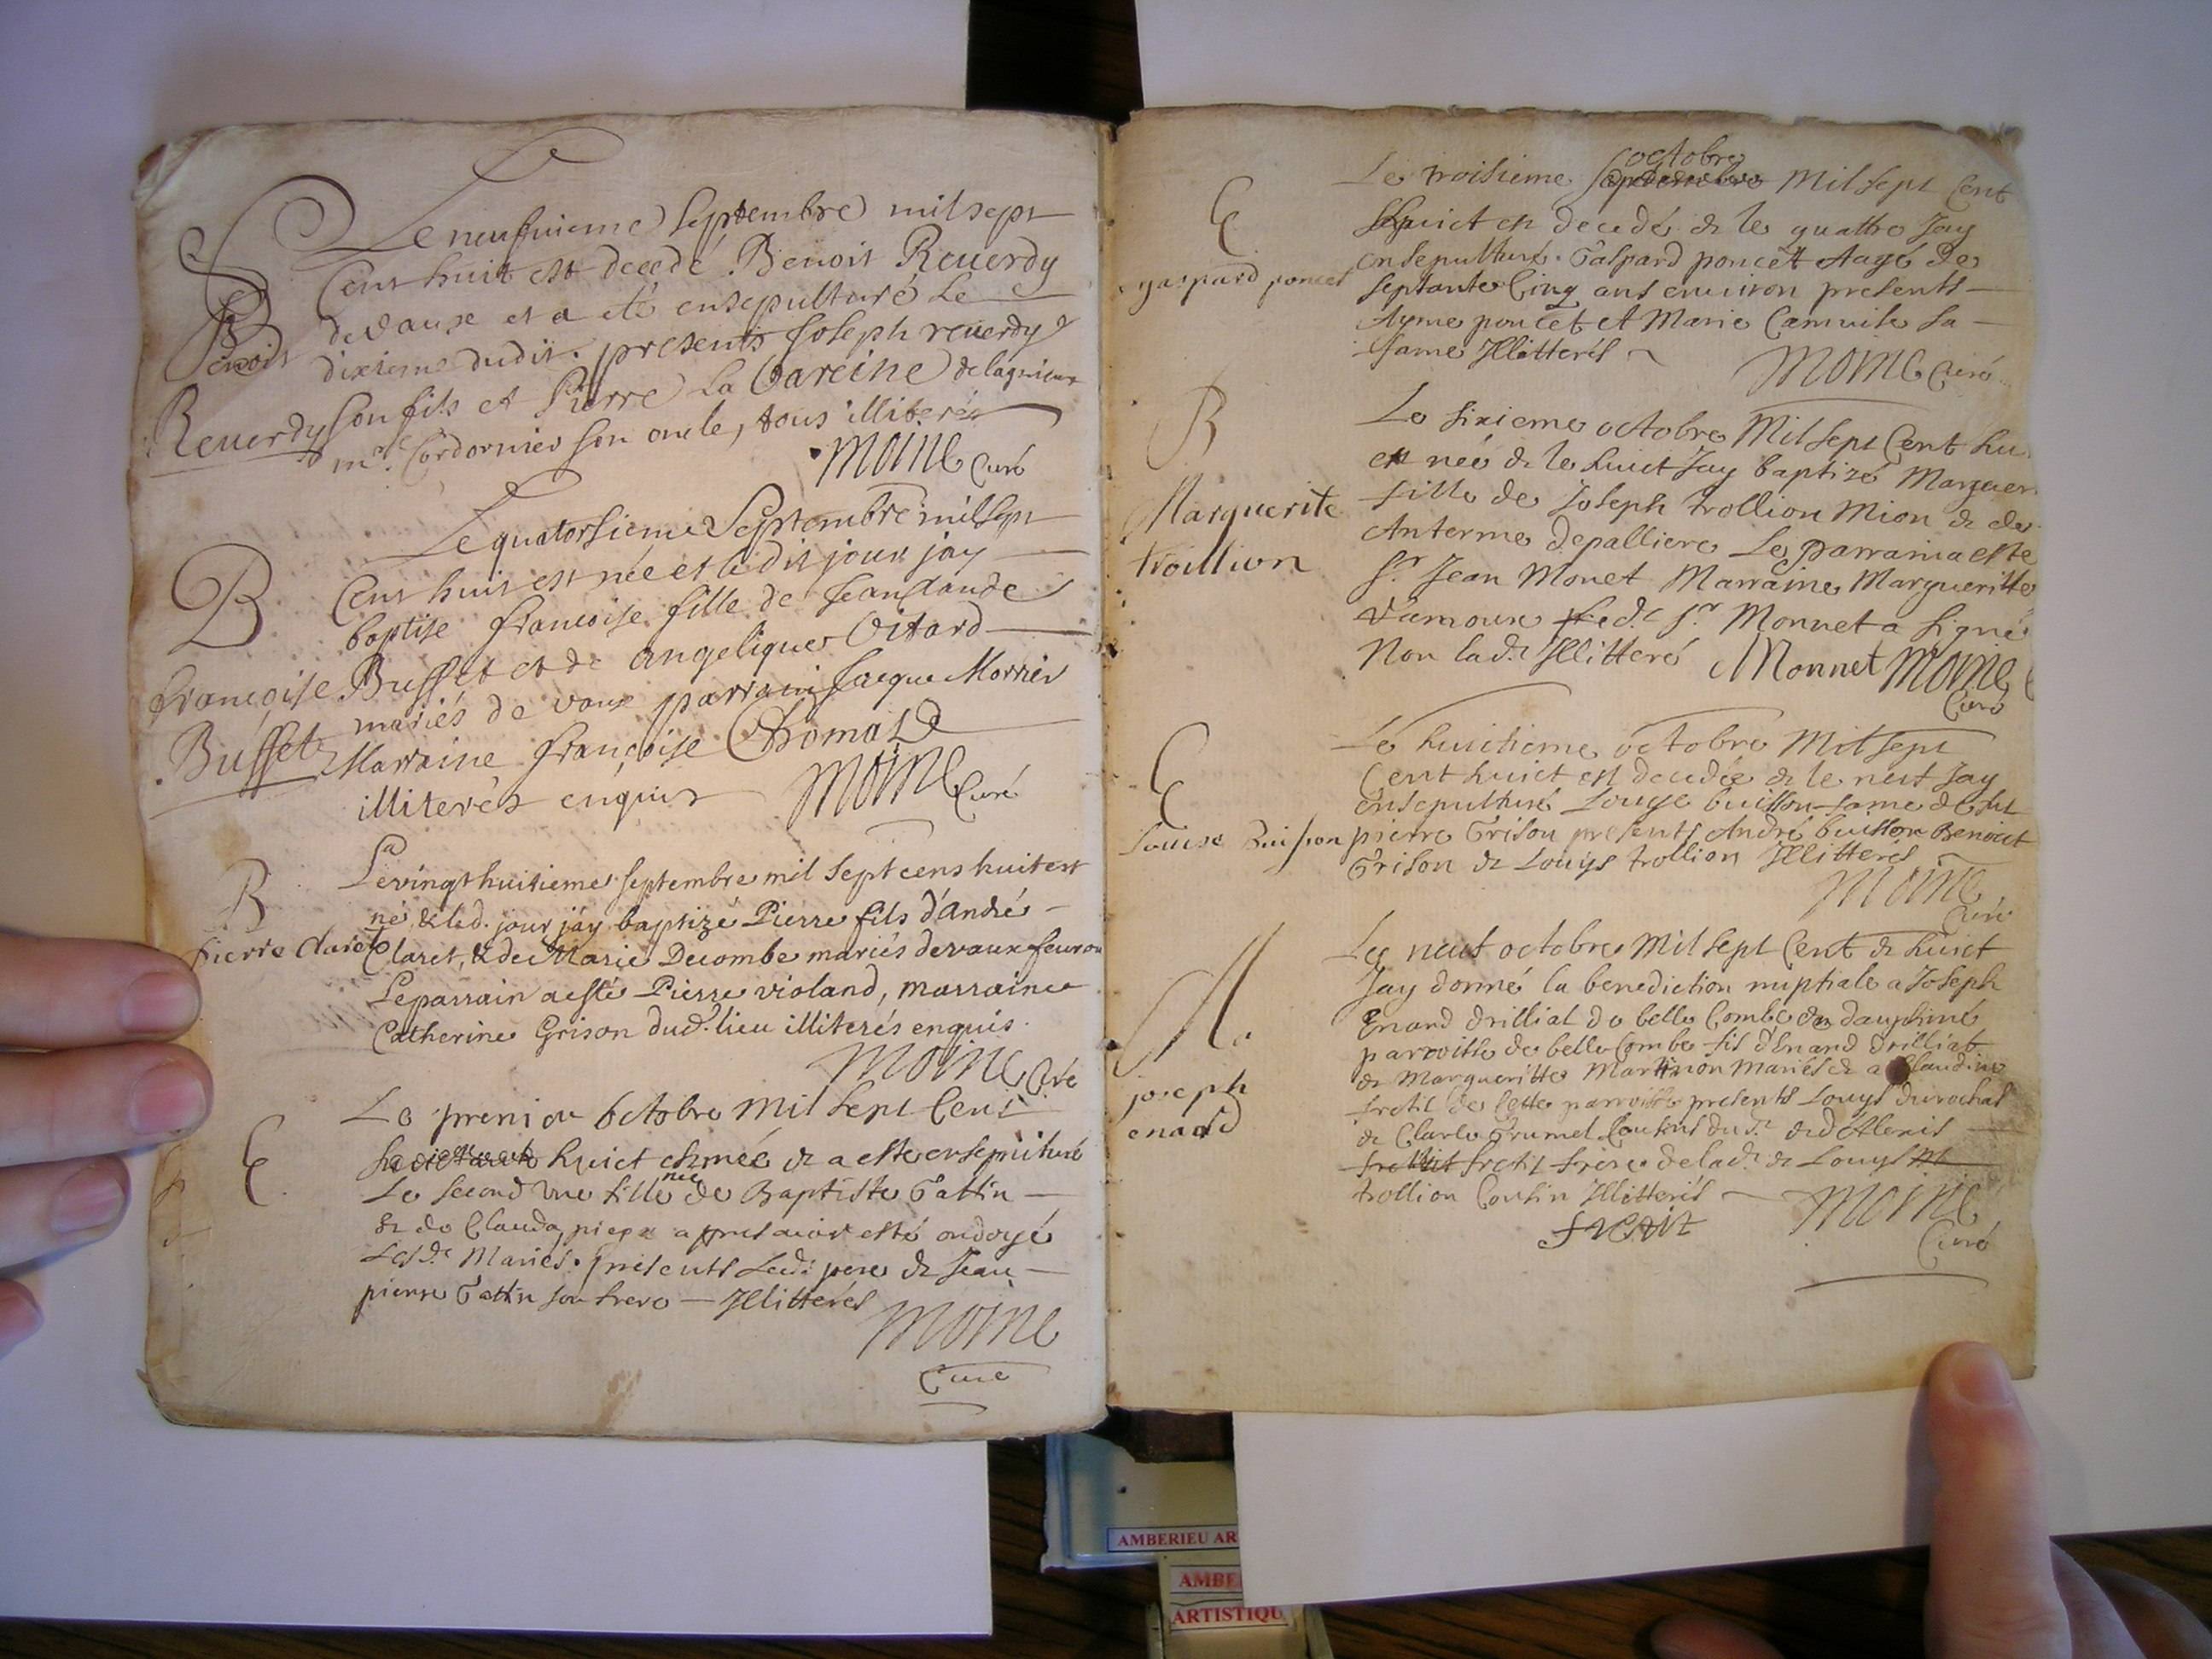 Le neufuieme Septembre mil sept
Cent huit est decedé Benoit Reuerdy
de Vaux et a eté ensepulturé Le
dixieme dudit. presents Joseph reuerdy
son fils et Pierre La Vareine de lagnieux
mre. Cordonnier son oncle, tous illiterés
Moine Curé
S
Benoit
Reuerdy
Le quatorsieme Septembre mil sept
Cent huit est née et le dit jour jay
baptise francoise fille de Jean Claude
Buffet et de angelique Vitard
mariés de vaux parrain Jacque Morrier
Marraine françoise Thomas
illiterés enquis Moine Curé
B
françoise
Buffet
Le vingt huitieme septembre mil sept cens huit est
né, & led. jour j'ay baptizé Pierre fils d'André
Claret, & de Marie Decombe mariés de vaux fevrou
Le parrain a esté Pierre violand, marraine
Catherine Grison dud. lieu illiterés enquis.
Moine Curé
B
pierre Claret
Le premier octobre Mil sept Cent
huict est née & a esté ensepulturé
Le second vne fille née de Baptiste Gattin
& de Clauda piepe appres auoir esté ondoyé
Lesd. Mariés. presents Ledt pere & Jean
pierre Gattin son frere Illitterés
Moine
Curé
E
Le troisieme octobre Mil sept Cent
huict est decedé & le quattre Jay
ensepulturé. Gaspard poncet Aagé de
septante Cinq ans enuiron presents
Ayme poncet et Marie Camuise sa
fame Illitterés Moine Curé
E
gaspard poncet
Le sixieme octobre Mil sept Cent hu
est née & le huict Jay baptizé Marguer
fille de Joseph trollion Mion & de
Anterme depalliere Le parrain a esté
Sr. Jean Monet Marraine Margueritte
Vamoux Led. Sr. Monnet a signé
Non lad. Illitteré Monnet Moine
Curé
B
Marguerite
troillion
Le huictieme octobre Mil sept
Cent huict est decedée & le neuf Jay
ensepulturé Louyse buisson fame de fu
pierre Grison presents André buisson Benoict
Grison & Louys trollion Illitterés
Moine
Curé
E
Louise Buisson
Le neuf octobre Mil sept Cent & huict
Jay donné la benediction nuptiale a Joseph
Enard drilliat de belle Combe en dauphiné
parroisse de belle Combe fils d'Enard drilliat
& Margueritte Martinon Mariés & a Claudine
fretit de Cette parroisse presents Louys durochat
& Claude Grumel Cousins dud. & d'Alexis
fretit frere de lad. & Louys
trollion Cousin Illitterés Moine
fretit Curé
M.
joseph
enard
AMBERIEU AR
AMBE
ARTISTIQU